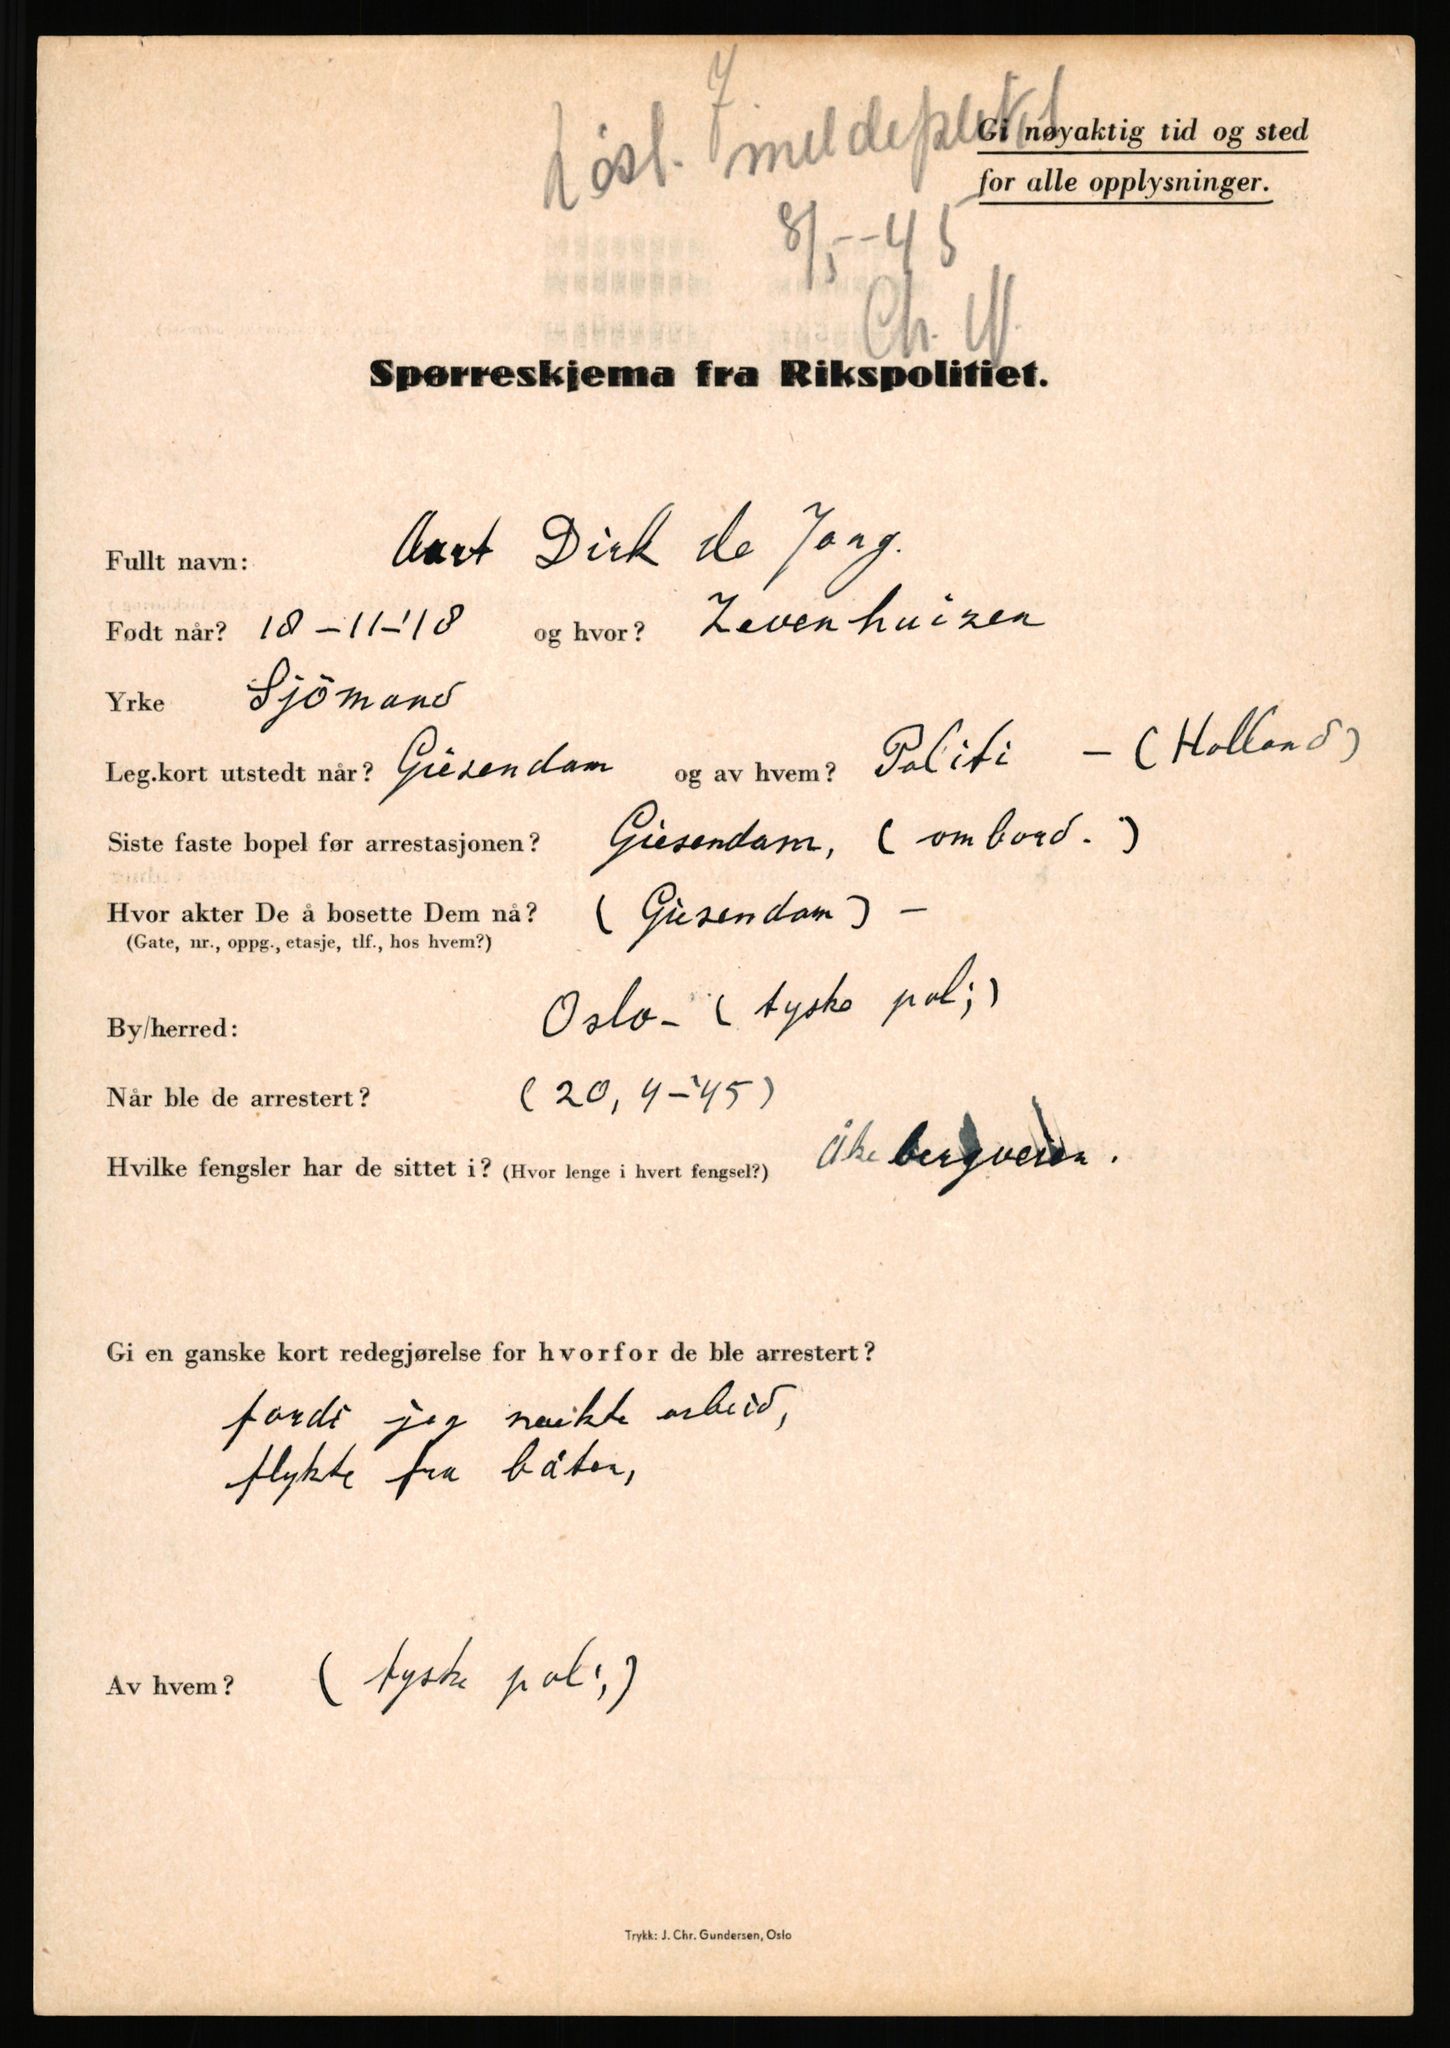 Løsl. meldeplikt
8/5-45
Ch. N.
Gi nøyaktig tid og sted
for alle opplysninger.
Spørreskjema fra Rikspolitiet.
Fullt navn: Aart Dirk de Jong.
Født når? 18-11-'18 og hvor? Zevenhuizen
Yrke Sjömand
Leg.kort utstedt når? Giesendam og av hvem? Politi - (Holland)
Siste faste bopel før arrestasjonen? Giesendam, (ombord.)
Hvor akter De å bosette Dem nå? (Giesendam) -
(Gate, nr., oppg., etasje, tlf., hos hvem?)
By/herred: Oslo- (tyske poli;)
Når ble de arrestert? (20, 4-'45)
Hvilke fengsler har de sittet i? (Hvor lenge i hvert fengsel?) Åkebergveien.
Gi en ganske kort redegjørelse for hvorfor de ble arrestert?
fordi jeg neikte arbeid,
flykte fra båten,
Av hvem? (tyske poli,)
Trykk: J. Chr. Gundersen, Oslo